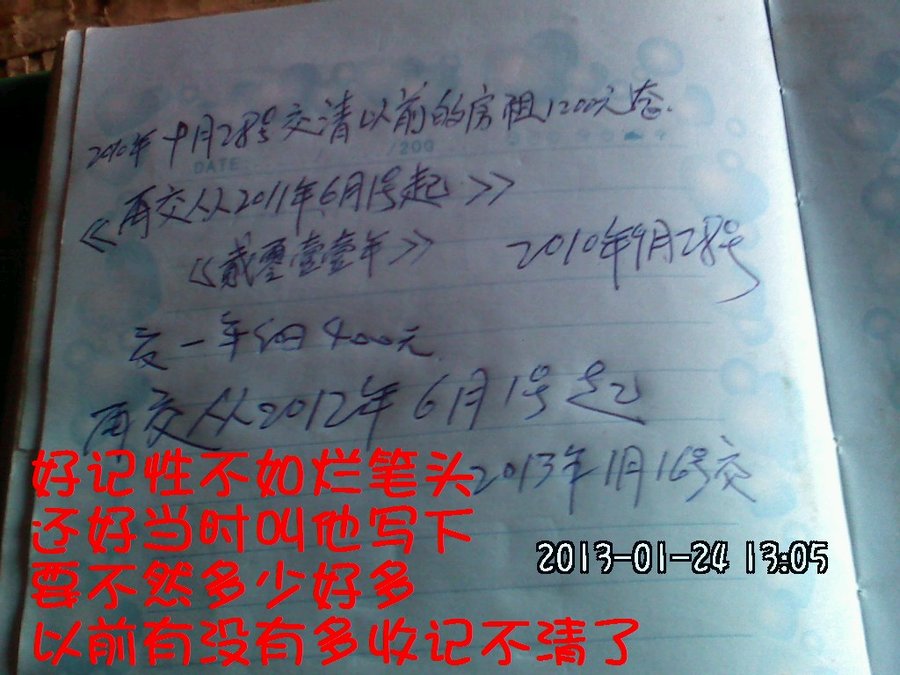 2010年十月28号交清以前的房租1200元
DATE /200
《再交从2011年6月1号起》
《贰零壹壹年》 2010年9月28号
交一年 400元
再交从2012年6月1号起
2013年1月16号交
好记性不如烂笔头
还好当时叫他写下
要不然多少好多
以前有没有多收记不清了
2013-01-24 13:05